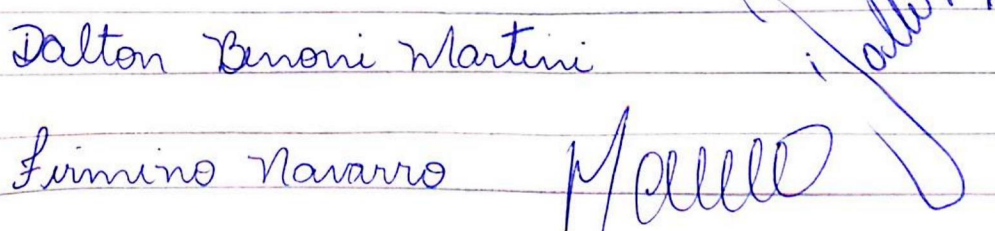 Dalton Benoni Martini
Firmino Navarro